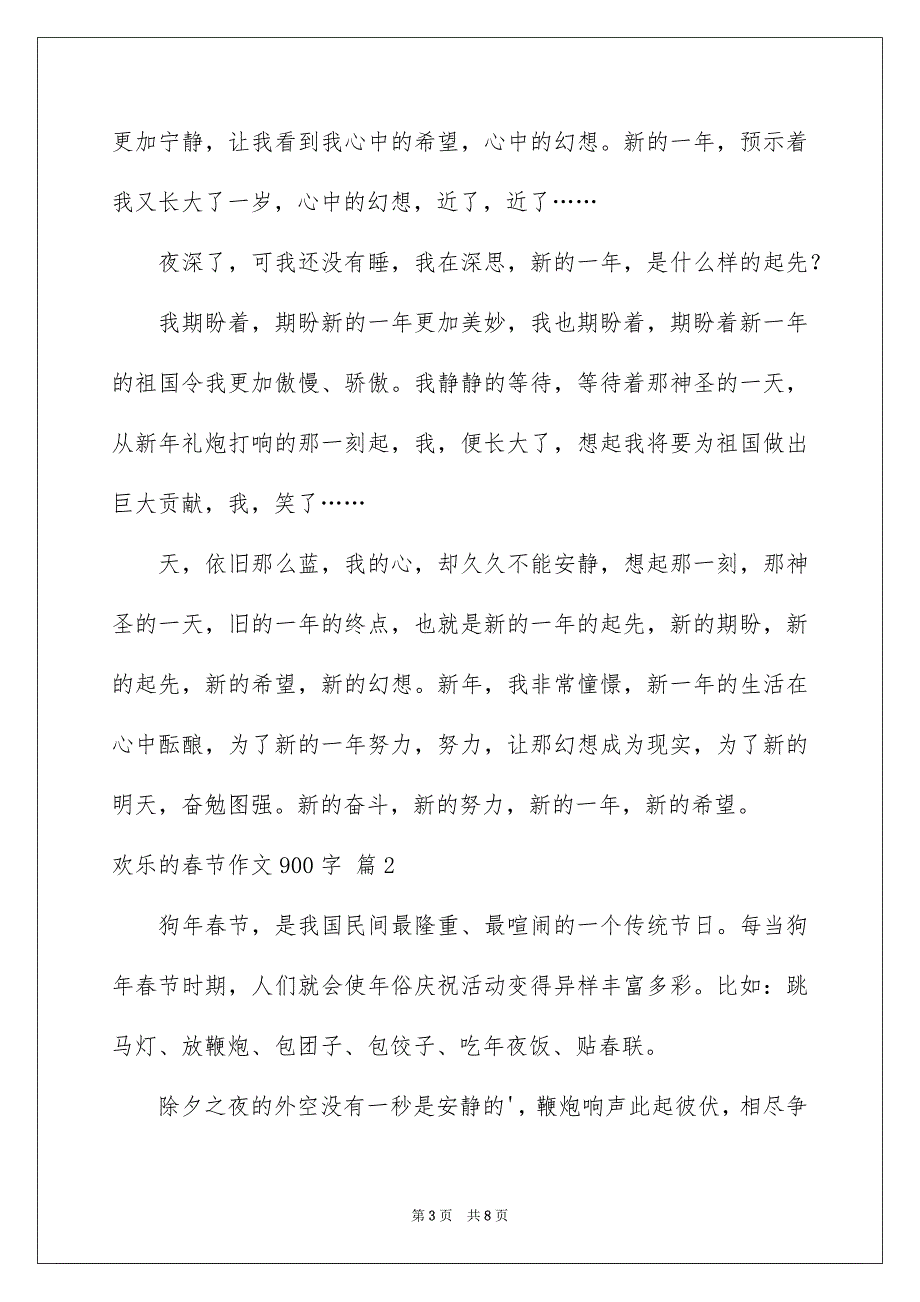 更加宁静，让我看到我心中的希望，心中的幻想。新的一年，预示着
我又长大了一岁，心中的幻想，近了，近了……
夜深了，可我还没有睡，我在深思，新的一年，是什么样的起先？
我期盼着，期盼新的一年更加美妙，我也期盼着，期盼着新一年
的祖国令我更加傲慢、骄傲。我静静的等待，等待着那神圣的一天，
从新年礼炮打响的那一刻起，我，便长大了，想起我将要为祖国做出
巨大贡献，我，笑了……
天，依旧那么蓝，我的心，却久久不能安静，想起那一刻，那神
圣的一天，旧的一年的终点，也就是新的一年的起先，新的期盼，新
的起先，新的希望，新的幻想。新年，我非常憧憬，新一年的生活在
心中酝酿，为了新的一年努力，努力，让那幻想成为现实，为了新的
明天，奋勉图强。新的奋斗，新的努力，新的一年，新的希望。
欢乐的春节作文900字 篇2
狗年春节，是我国民间最隆重、最喧闹的一个传统节日。每当狗
年春节时期，人们就会使年俗庆祝活动变得异样丰富多彩。比如：跳
马灯、放鞭炮、包团子、包饺子、吃年夜饭、贴春联。
除夕之夜的外空没有一秒是安静的'，鞭炮响声此起彼伏，相尽争
第3页 共8页